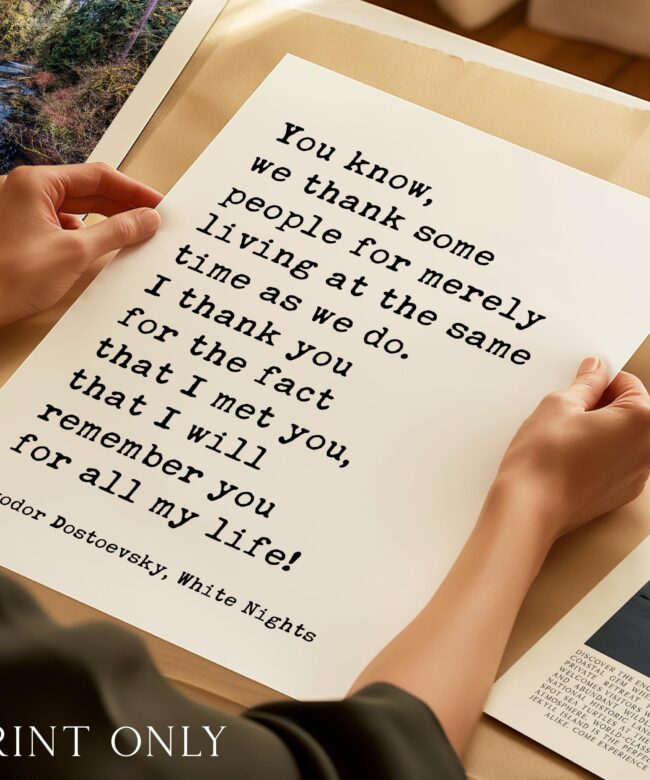 You know,
we thank some
people for merely
living at the same
time as we do.
I thank you
for the fact
that I met you,
that I will
remember you
for all my life!
Dostoevsky, White Nights
RINT ONLY
DISCOVER THE
COASTAL GEM
PRIVATE RETREAT
WELCOMES VISITORS
AND ABUNDANT
NATIONAL HISTORIC
SPOT SEA TURTLES AT THE
ATMOSPHERE, WORLD-CLASS
JEKYLL ISLAND IS THE
ALIKE. COME EXPERIENCE